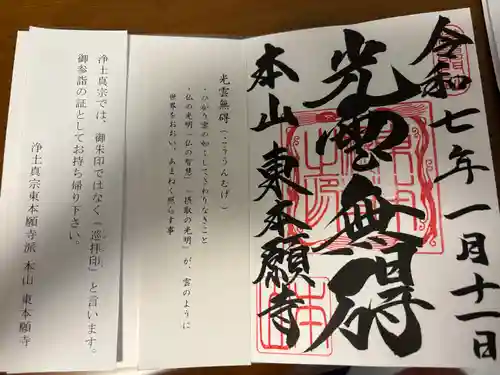 令和七年一月十一日
光雲無碍
本山東本願寺
光雲無碍（こううんむげ）
・ひかり雲の如くしてさわりなきこと
・仏の光明「仏の智慧」「摂取の光明」が、雲のように
世界をおおい、あまねく照らす事
浄土真宗では、御朱印ではなく「巡拝印」と言います。
御参詣の証としてお持ち帰り下さい。
浄土真宗東本願寺派 本山 東本願寺